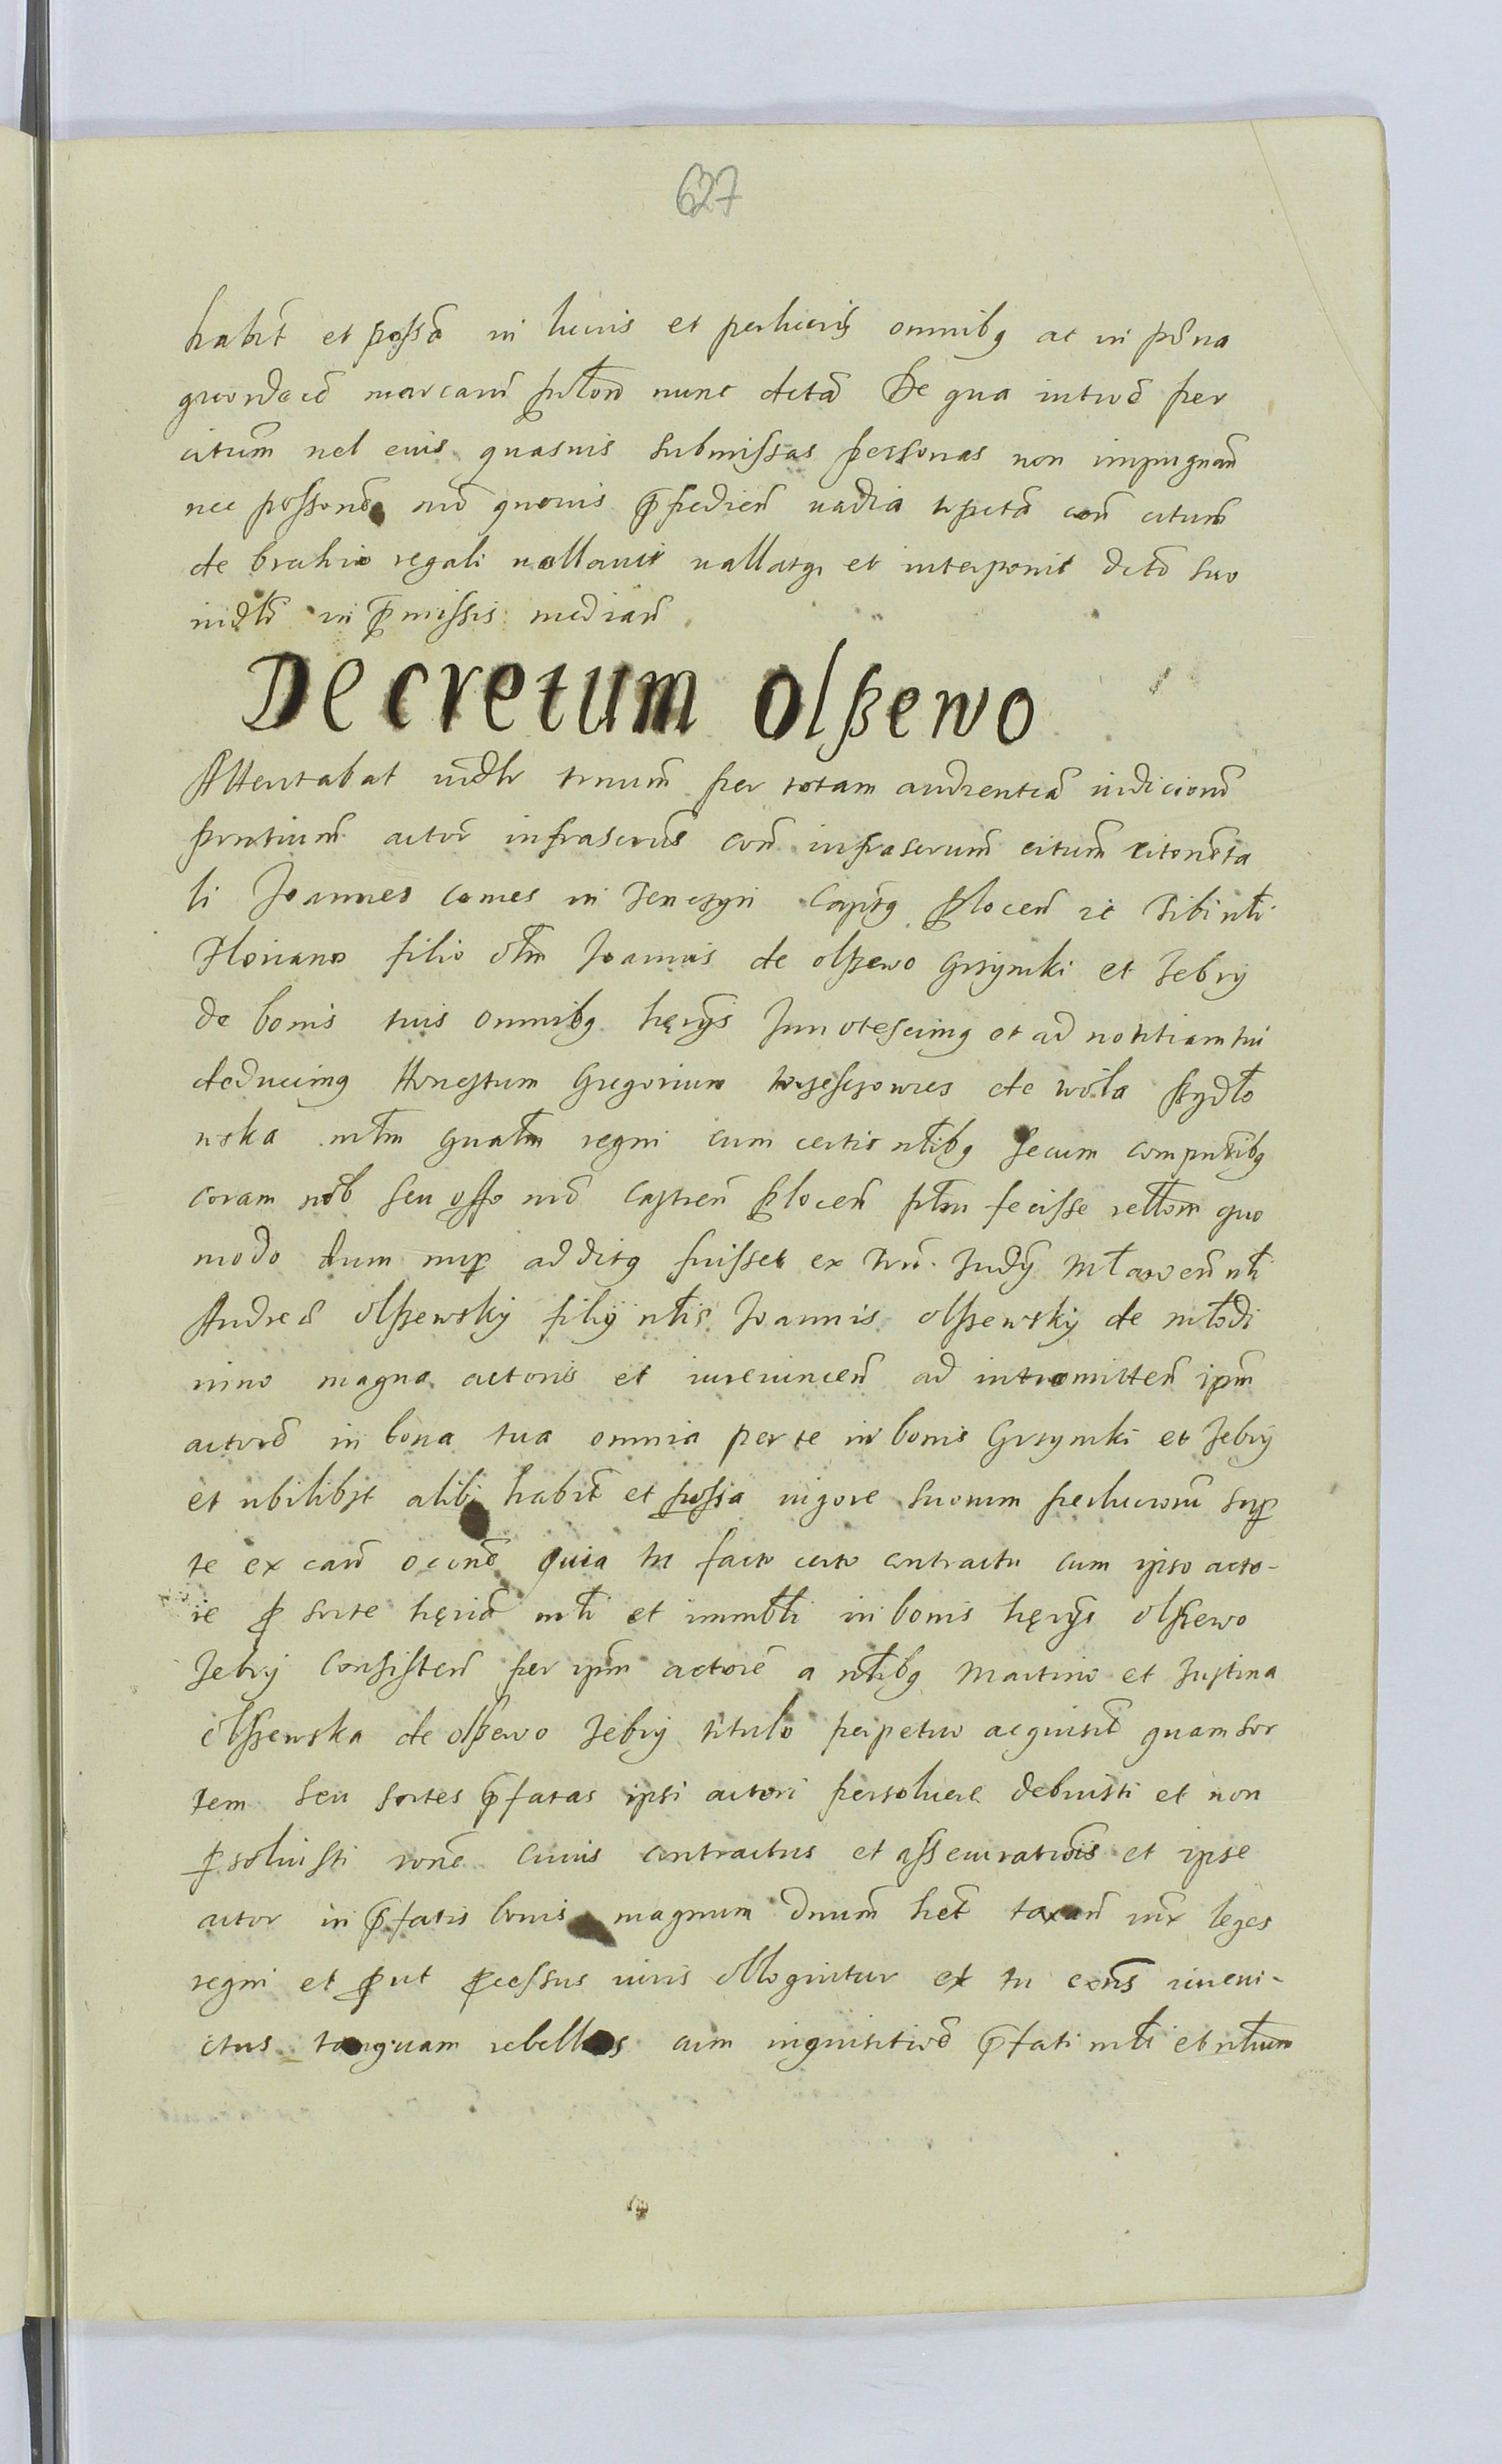 627
habit et possa in lucris et perlucris omnibq ac in pena
quordecẽ marcarũ pulton nunc dicta De qua intro per
citum vel eius quasuis submissas personas non impugnan
nec possone mõ quouis pfedien vadia con citum
de brachio regali vallauit vallatqz et interponit dcto suo
iudli in pmissis median
Decretum olßewo
Attentabat iudlr tmum per totam audientiã iudiciorũ
pntium actor infrascrus con infrascrum citum citoneta
li Joannes comes in Tenczyn Captq Plocen ic Tibi nli
Floriano filio olim Joannis de olßewo Grzymki et Jebry
de bonis tuis omnibq heryis Innotescimq et ad notitiam tui
deducimq Honestum Gregorium de wola ßydlo
wska mlm gnalm regni cum certis nlibq secum compntibq
coram nob seu offo nrõ castren Plocen plm fecisse rellom quo
modo dum nup additq fuisset ex Judy Mlawen nli
Andreã olßewsky filij nlis Joannis olßewsky de mlodi
nino magna actoris et iureuincen ad intromitten ipm
actorẽ in bona tua omnia per te in bonis Grzymki et Jebry
et ubilibzt alibi habit et possa vigore suorum perlucrorũ sup
te ex caũ occone quia tu facto certo contractu cum ipso acto-
re p sorte heria nli et immbli in bonis heryis olßewo
Jebry consisten per ipm actore a nlibq Martino et Justina
olßewska de olßewo Jebry titulo perpetuo acquisit quam sor
tem seu sortes pfatas ipsi actori persoluere debuisti et non
psoluisti rone cuius contractus et assecurationis et ipse
actor in pfatis bonis magnum dnum het taxan iux leges
regni et put pcessus iuris colloquitur et tu exns iureui-
ctus tanquam rebellis cum inquisitioẽ pfati nli et nlium